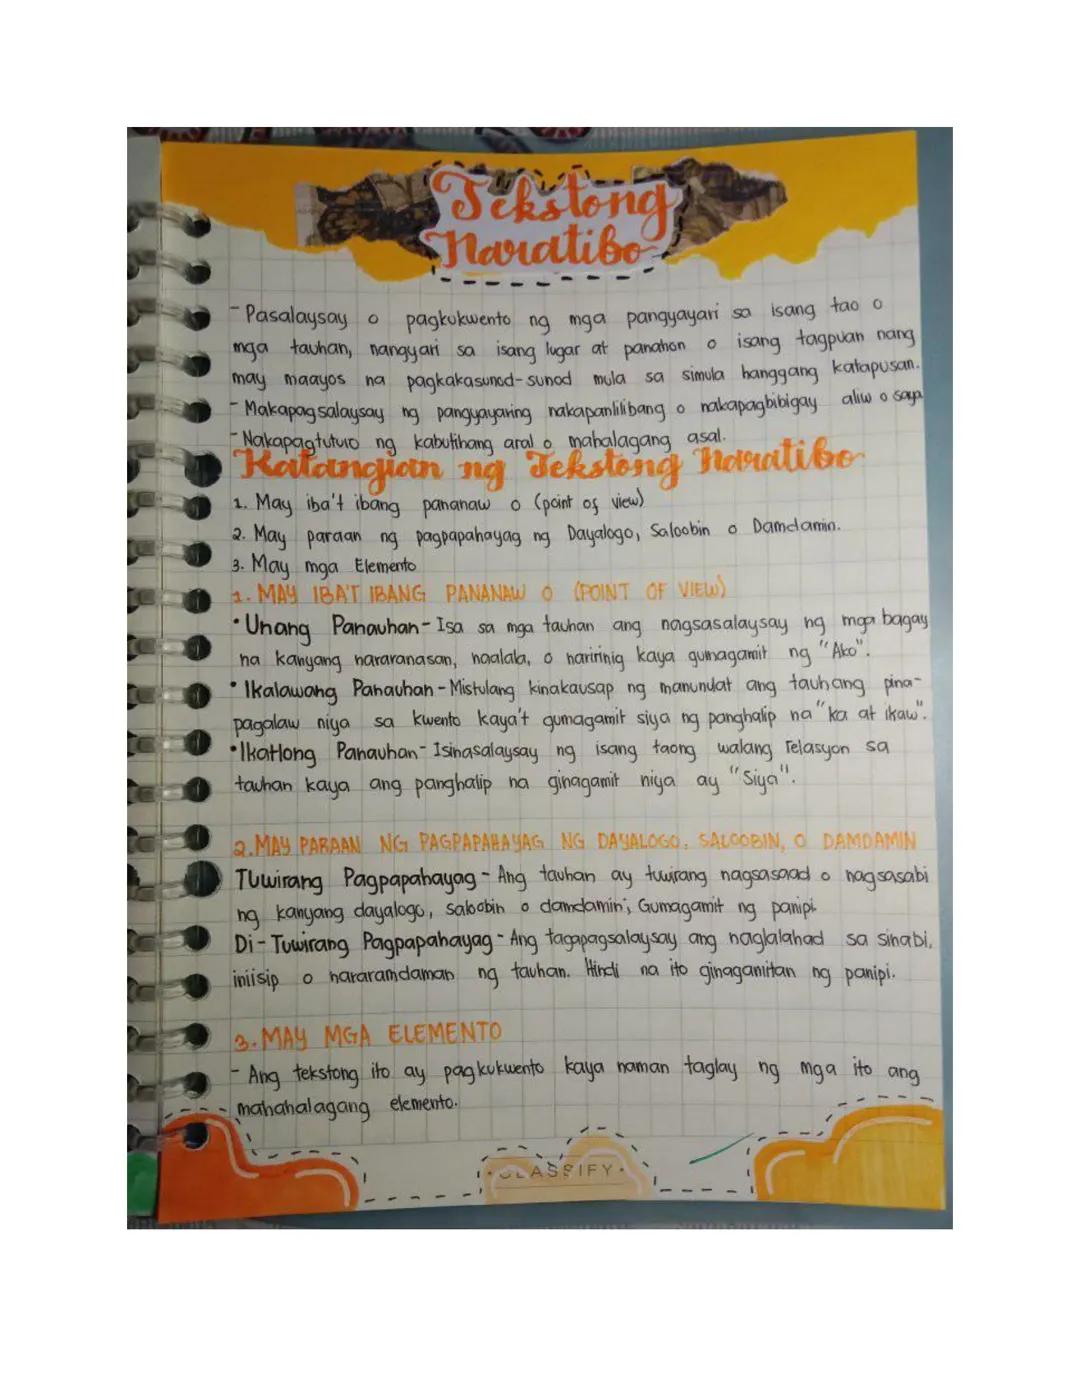 Tekstong
Naratibo
- Pasalaysay o pagkukwento ng mga pangyayari sa isang tao o
mga tauhan, nangyari sa isang lugar at panahon o isang tagpuan nang
may maayos na pagkakasunod-sunod mula sa simula hanggang katapusan.
- Makapagsalaysay ng pangyayaring nakapanlilibang o nakapagbibigay aliw o saya
- Nakapagtuturo ng kabutihang aral o mahalagang asal.
Katangian ng Tekstong Naratibo
1. May iba't ibang pananaw o (point of view)
2. May paraan ng pagpapahayag ng Dayalogo, Saloobin o Damdamin.
3. May mga Elemento
1. MAY IBA'T IBANG PANANAW O (POINT OF VIEW)
• Unang Panauhan - Isa sa mga tauhan ang nagsasalaysay ng mga bagay
na kanyang nararanasan, naalala, o naririnig kaya gumagamit ng "Ako".
• Ikalawang Panauhan - Mistulang kinakausap ng manundat ang tauhang pina-
pagalaw niya sa kwento kaya't gumagamit siya ng panghalip na "ka at ikaw".
• Ikatlong Panauhan - Isinasalaysay ng isang taong walang relasyon sa
tauhan kaya ang panghalip na ginagamit niya ay "Siya".
2. MAY PARAAN NG PAGPAPAHAYAG NG DAYALOGO, SALOOBIN, O DAMDAMIN
Tuwirang Pagpapahayag - Ang tauhan ay tuwirang nagsasaad o nagsasabi
ng kanyang dayalogo, saloobin o damdamin; Gumagamit ng panipi.
Di-Tuwirang Pagpapahayag - Ang tagapagsalaysay ang naglalahad sa sinabi,
iniisip o nararamdaman ng tauhan. Hindi na ito ginagamitan ng panipi.
3. MAY MGA ELEMENTO
- Ang tekstong ito ay pagkukwento kaya naman taglay ng mga ito ang
mahahalagang elemento.
• CLASSIFY •